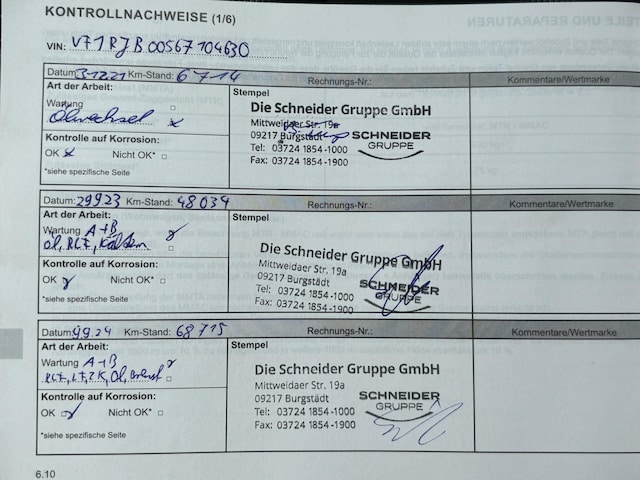 KONTROLLNACHWEISE (1/6)
VIN: VF1RJB00567104630
Datum: 3.12.21 Km-Stand: 6714 Rechnungs-Nr.: Kommentare/Wertmarke
Art der Arbeit:
Wartung
Ölwechsel x
Kontrolle auf Korrosion:
OK x Nicht OK*
*siehe spezifische Seite
Stempel
Die Schneider Gruppe GmbH
Mittweidaer Str. 19a
09217 Burgstädt
Tel: 03724 1854-1000
Fax: 03724 1854-1900
SCHNEIDER
GRUPPE
Datum: 29.9.23 Km-Stand: 48034 Rechnungs-Nr.: Kommentare/Wertmarke
Art der Arbeit:
Wartung A+B
Öl, RLF,
Kontrolle auf Korrosion:
OK Nicht OK*
*siehe spezifische Seite
Stempel
Die Schneider Gruppe GmbH
Mittweidaer Str. 19a
09217 Burgstädt
Tel: 03724 1854-1000
Fax: 03724 1854-1900
SCHNEIDER
GRUPPE
Datum: 9.9.24 Km-Stand: 68715 Rechnungs-Nr.: Kommentare/Wertmarke
Art der Arbeit:
Wartung A+B
RLF, LF, ZK, Öl,
Kontrolle auf Korrosion:
OK Nicht OK*
*siehe spezifische Seite
Stempel
Die Schneider Gruppe GmbH
Mittweidaer Str. 19a
09217 Burgstädt
Tel: 03724 1854-1000
Fax: 03724 1854-1900
SCHNEIDER
GRUPPE
6.10